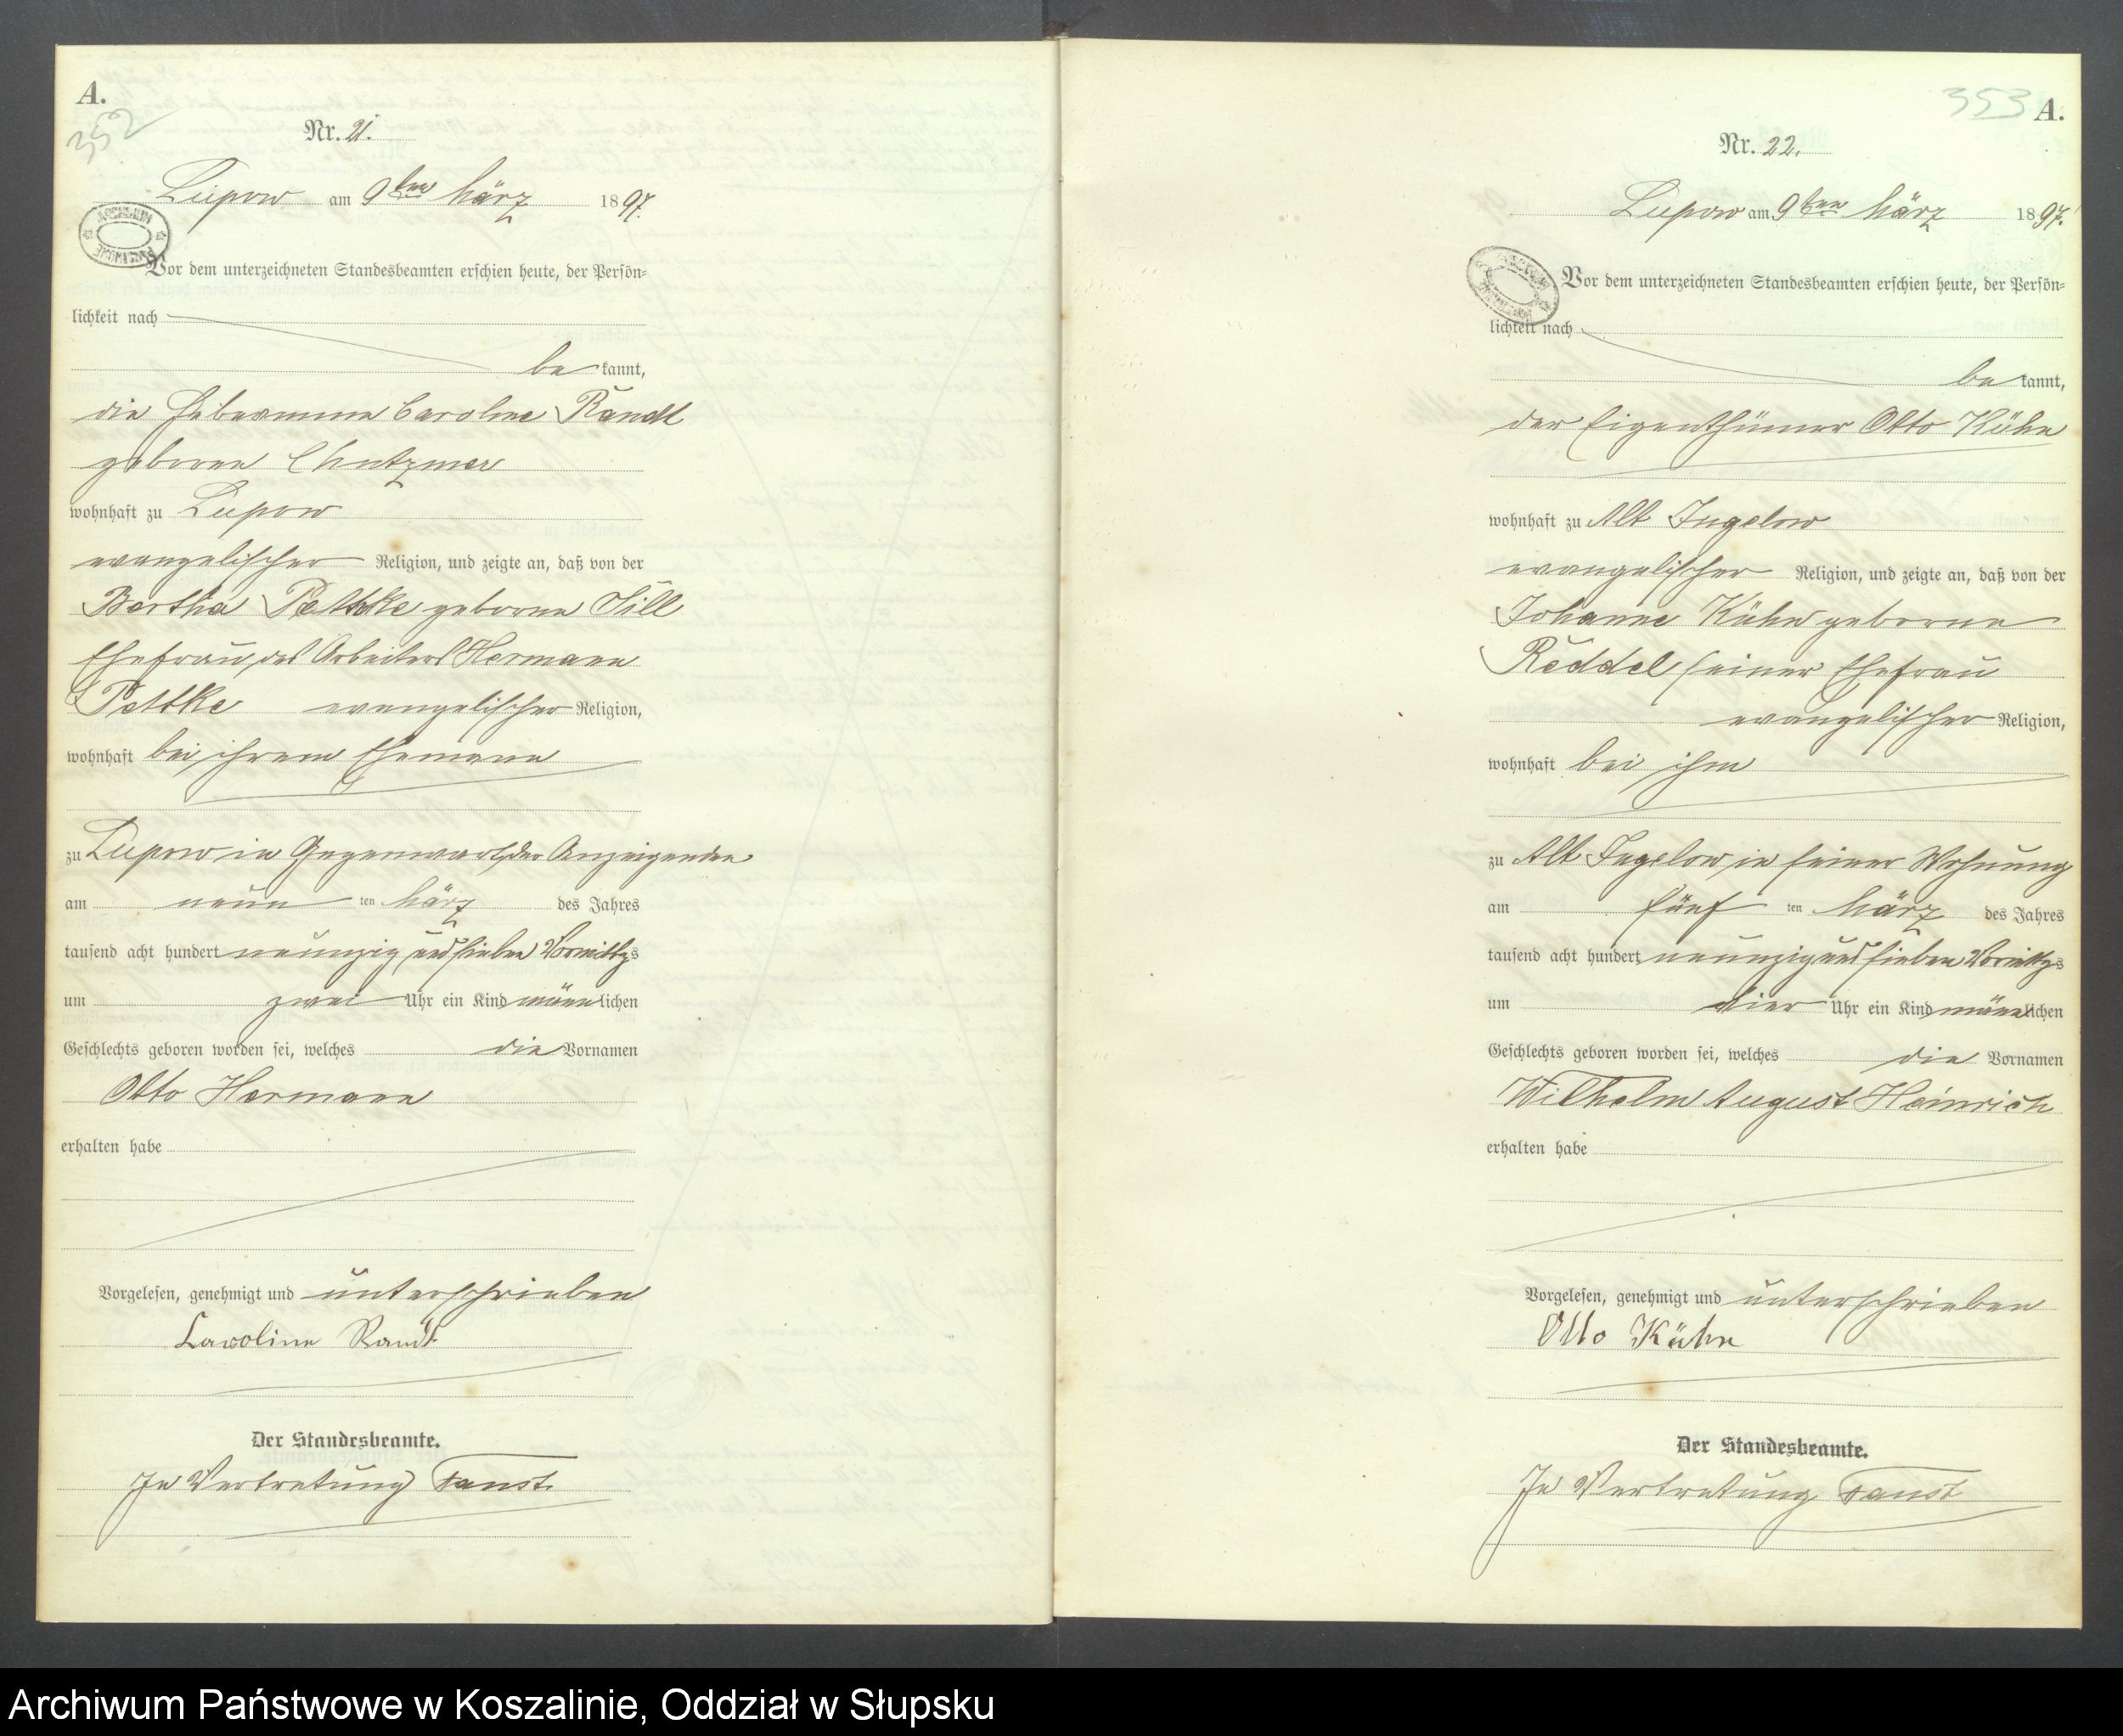 A.
352
Nr. 21.
Lupow am 9ten März 1897.
Vor dem unterzeichneten Standesbeamten erschien heute, der Persön-
lichkeit nach
be kannt,
die Hebeamme Caroline Randt
geborne
wohnhaft zu Lupow
evangelischer Religion, und zeigte an, daß von der
Bertha Pettke geborne Sill
Ehefrau des Arbeiters Hermann
Pettke evangelischer Religion,
wohnhaft bei ihrem Ehemann
zu Lupow in Gegenwart der Anzeigenden
am neun ten März des Jahres
tausend acht hundert neunzig und sieben Vormittags
um zwei Uhr ein Kind männlichen
Geschlechts geboren worden sei, welches die Vornamen
Otto Hermann
erhalten habe
Vorgelesen, genehmigt und unterschrieben
Caroline Randt
Der Standesbeamte.
In Vertretung Faust.
353 A.
Nr. 22.
Lupow am 9ten März 1897.
Vor dem unterzeichneten Standesbeamten erschien heute, der Persön-
lichkeit nach
be kannt,
der Eigenthümer Otto Kühn
wohnhaft zu Alt Jugelow
evangelischer Religion, und zeigte an, daß von der
Johanne Kühn geborne
Reddel seiner Ehefrau
evangelischer Religion,
wohnhaft bei ihm
zu Alt Jugelow in seiner Wohnung
am fünf ten März des Jahres
tausend acht hundert neunzig und sieben Vormittags
um vier Uhr ein Kind männlichen
Geschlechts geboren worden sei, welches die Vornamen
Wilhelm August Heinrich
erhalten habe
Vorgelesen, genehmigt und unterschrieben
Otto Kühn
Der Standesbeamte.
In Vertretung Faust
Archiwum Państwowe w Koszalinie, Oddział w Słupsku